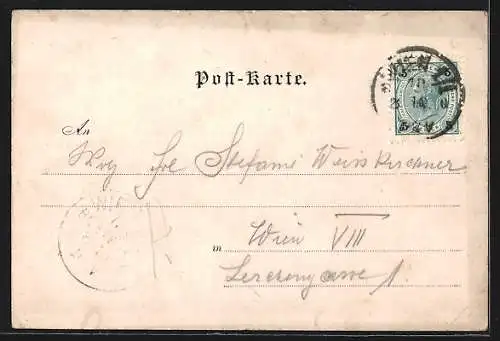 Post-Karte.
An
Stefanie Weisskirchner
in Wien VIII
Lerchengasse 1.
WIEN